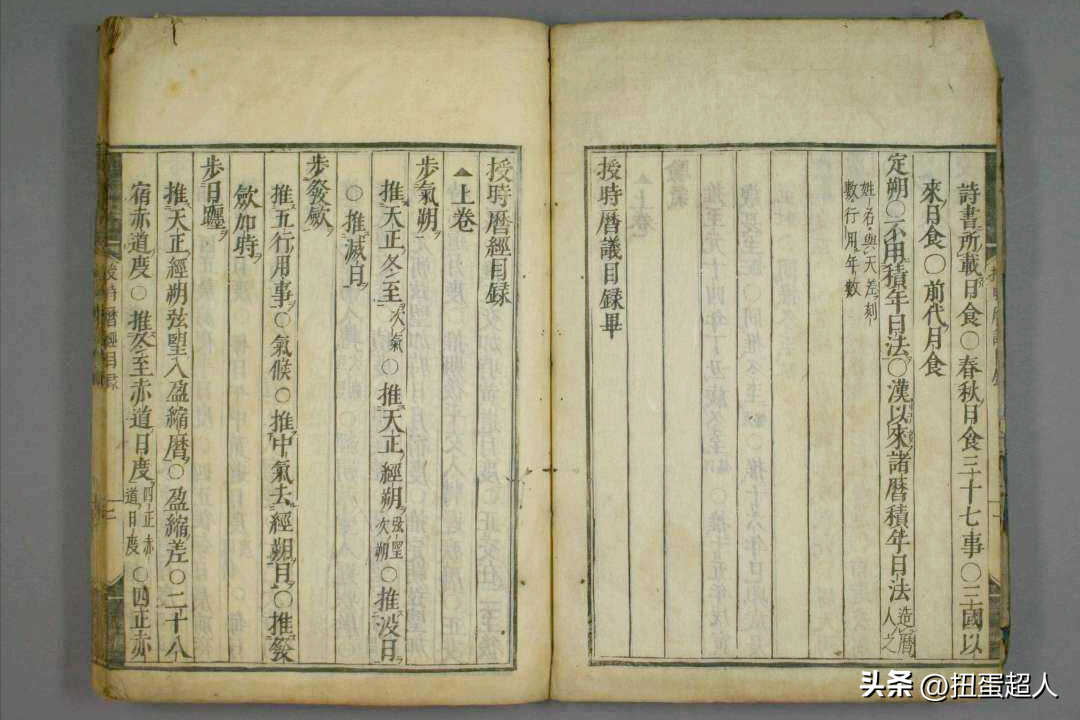 詩書所載日食〇春秋日食三十七事〇三國以
來日食〇前代月食
定朔〇不用積年日法〇漢以來諸曆積年日法造曆人之
姓名與天差刻
數行用年數
授時曆議目録畢
授時曆經目録
上卷
步氣朔
推天正冬至次氣〇推天正經朔弦望次朔〇推没日
〇推滅日
步發斂
推五行用事〇氣候〇推中氣去經朔〇推發
斂加時
步日躔
推天正經朔弦望入盈縮曆〇盈縮差〇二十八
宿赤道度〇推冬至赤道日度四正赤道日度〇四正赤
授時曆經目録
头条 @扭蛋超人